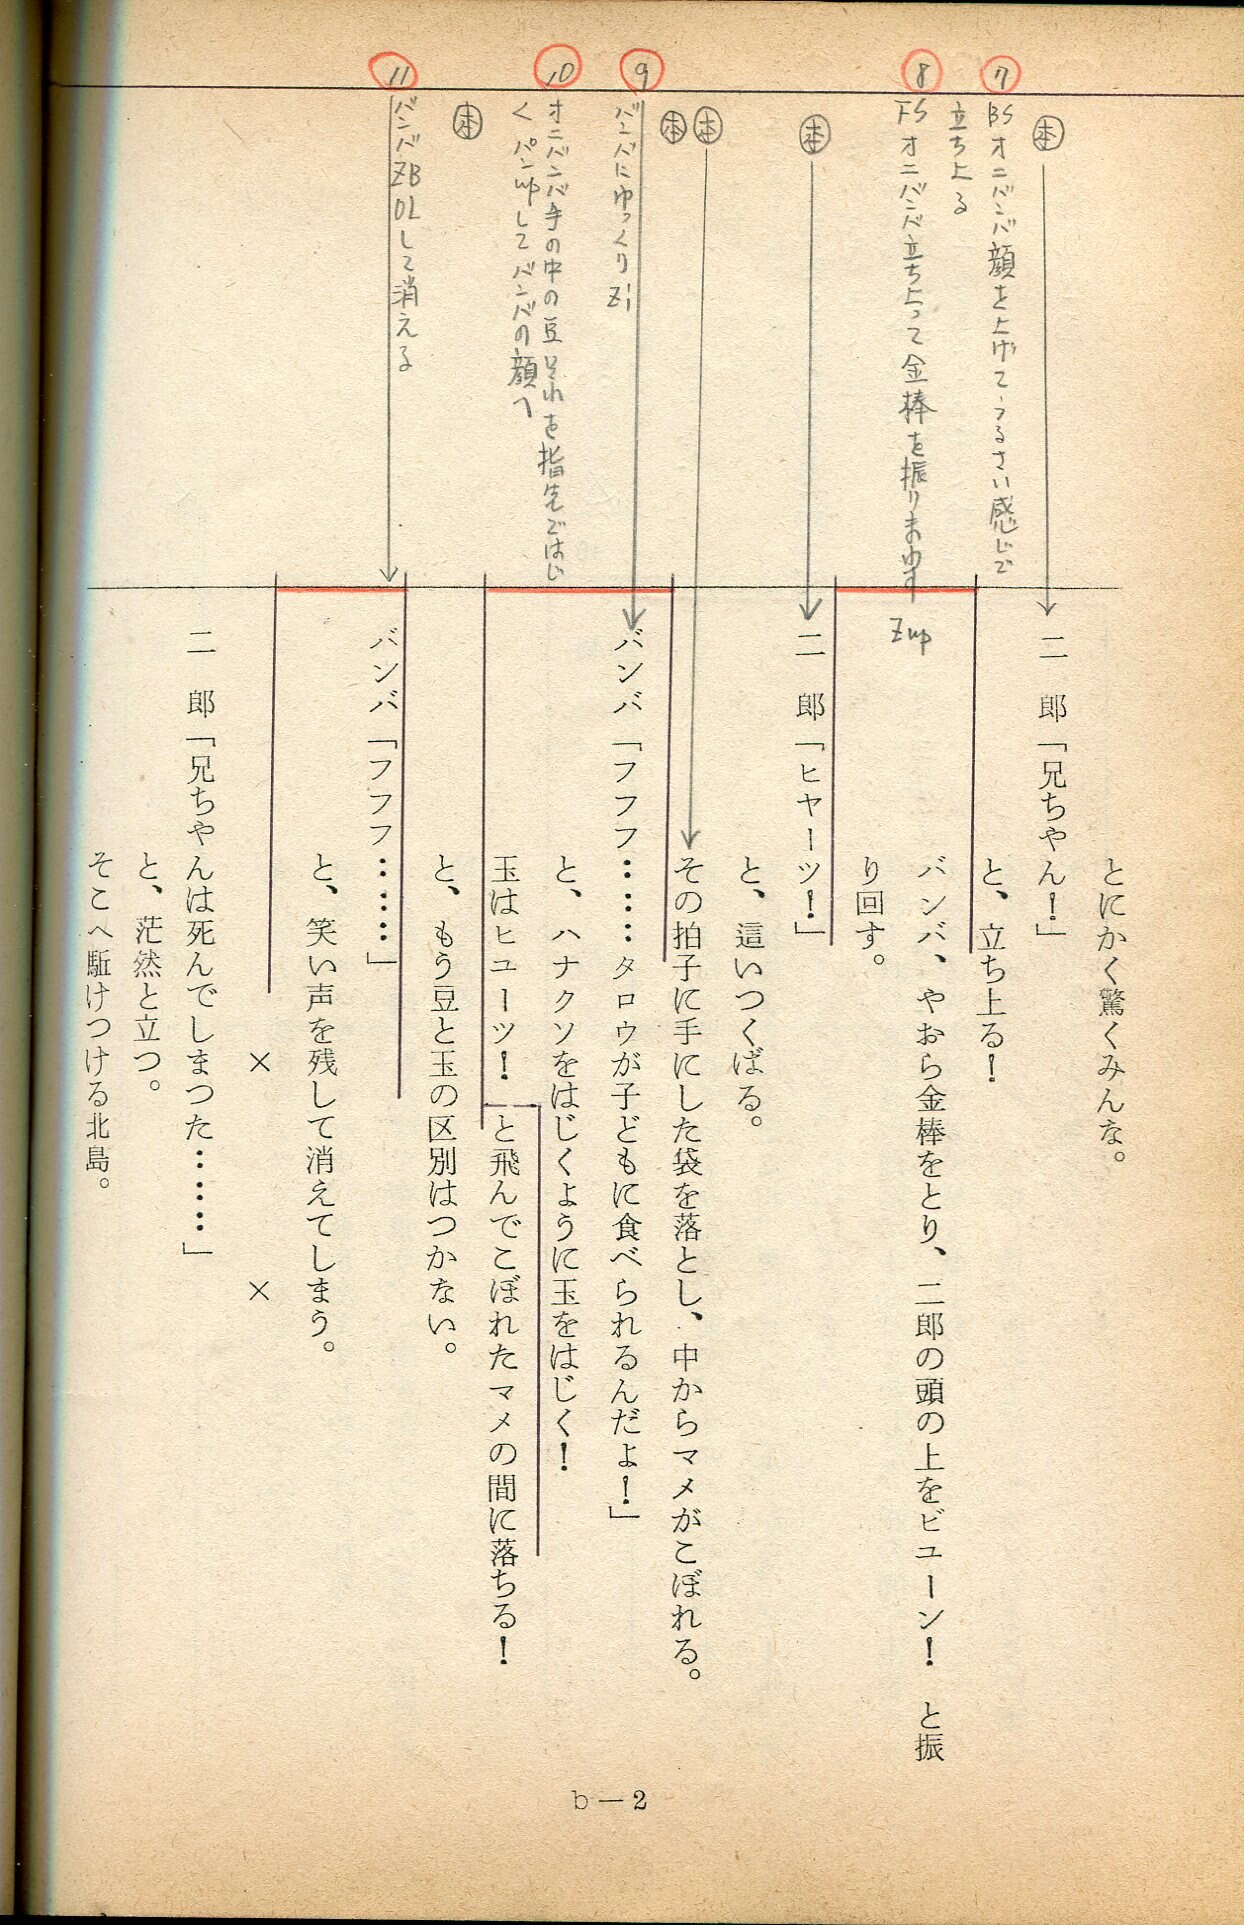 7
BS オニババ顔を上げてうるさい感じで
立ち上る
8
FS オニババ立ち上って金棒を振りまわす
Zup
9
バンバにゆっくり ZI
10
オニババ手の中の豆それを指先ではじ
く パンupしてバンバの顔へ
11
バンバZB OLして消える
本
本
本
本
本
とにかく驚くみんな。
二　郎「兄ちやん！」
と、立ち上る！
バンバ、やおら金棒をとり、二郎の頭の上をビユーン！　と振
り回す。
二　郎「ヒヤーツ！」
と、這いつくばる。
その拍子に手にした袋を落とし、中からマメがこぼれる。
バンバ「フフフ……タロウが子どもに食べられるんだよ！」
と、ハナクソをはじくように玉をはじく！
玉はヒユーツ！　と飛んでこぼれたマメの間に落ちる！
と、もう豆と玉の区別はつかない。
バンバ「フフフ……」
と、笑い声を残して消えてしまう。
×　　×
二　郎「兄ちやんは死んでしまつた……」
と、茫然と立つ。
そこへ駈けつける北島。
b－2